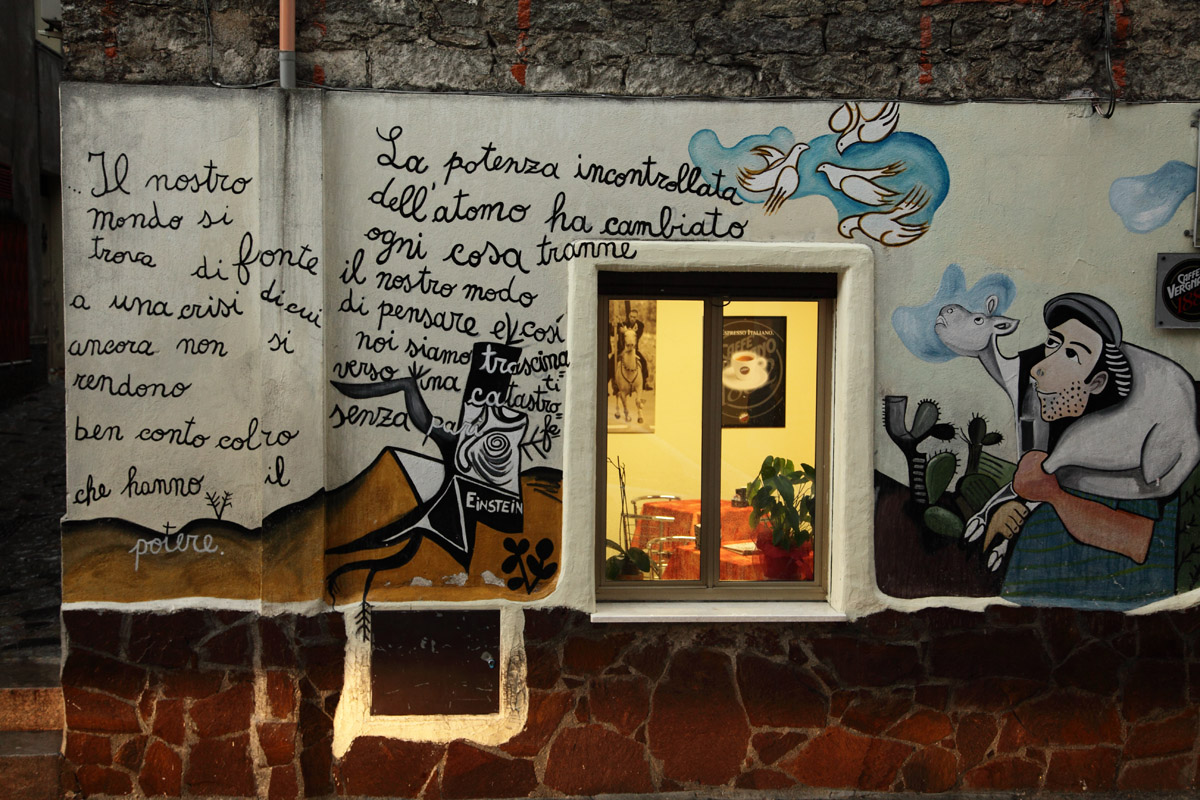 ...Il nostro
mondo si
trova di fronte
a una crisi di cui
ancora non si
rendono
ben conto coloro
che hanno il
potere.
La potenza incontrollata
dell'atomo ha cambiato
ogni cosa tranne
il nostro modo
di pensare e così
noi siamo trascina
ti=
verso una catastro=
fe
senza pari
EINSTEIN
ESPRESSO ITALIANO.
CAFFÈ
CAFFÈ